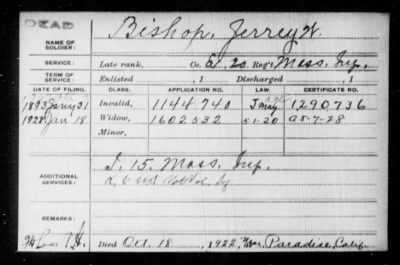 DEAD
NAME OF SOLDIER: Bishop, Jerrey W.
SERVICE: Late rank, Co. G. 20 Reg't Mass. Inf.
TERM OF SERVICE: Enlisted , 1 Discharged , 1
DATE OF FILING. CLASS. APPLICATION NO. LAW. CERTIFICATE NO.
1893 Jany 31 Invalid, 1144740 1290736
1928 Jan 18 Widow, 1602032 5-1-20 a5-7-28
Minor,
ADDITIONAL SERVICES: I. 15. Mass. Inf.
REMARKS:
Died Oct. 18, 1922, Paradise, Calif.